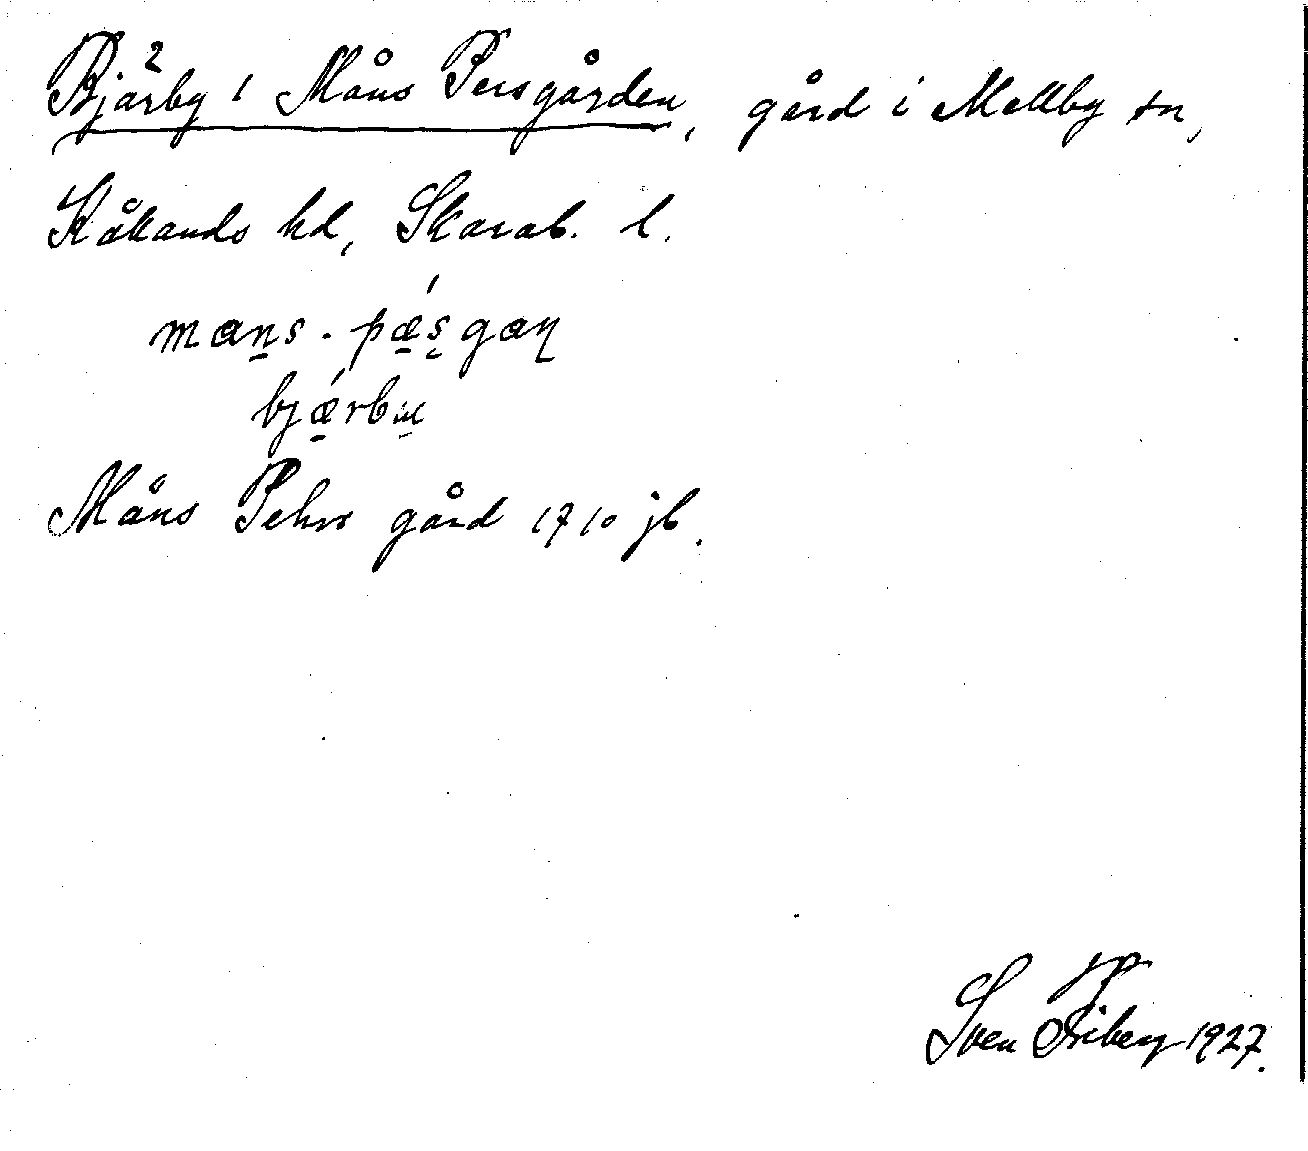 Bjärby 1 Måns Persgården, gård i Mellby sn,
Kåkands hd, Skarab. l.
mans. pǽ̱sgaɳ
bjǽ̱rbu̱
Måns Pehrs gård 1710 jb.
Sven Friberg 1927.